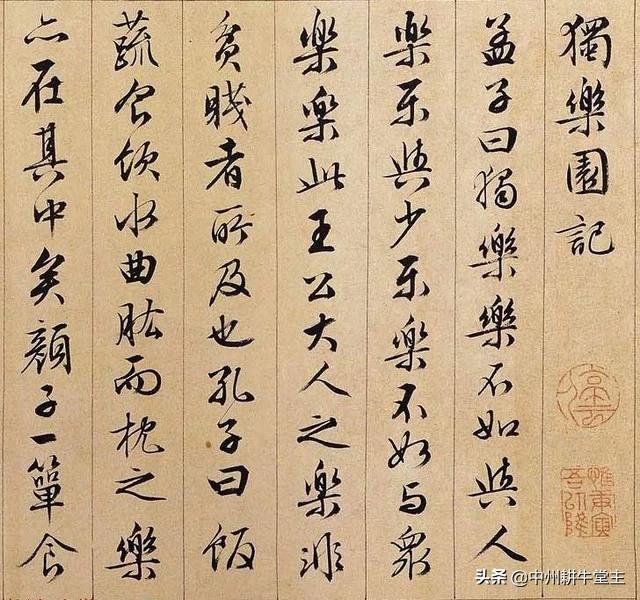 獨樂園記
停雲
惟庚寅吾以降
孟子曰獨樂樂不如與人
樂乐與少乐樂不如与衆
樂樂此王公大人之樂非
貧賤者所及也孔子曰飯
蔬食飲水曲肱而枕之樂
亦在其中矣顏子一簞食
头条 @中州耕牛堂主